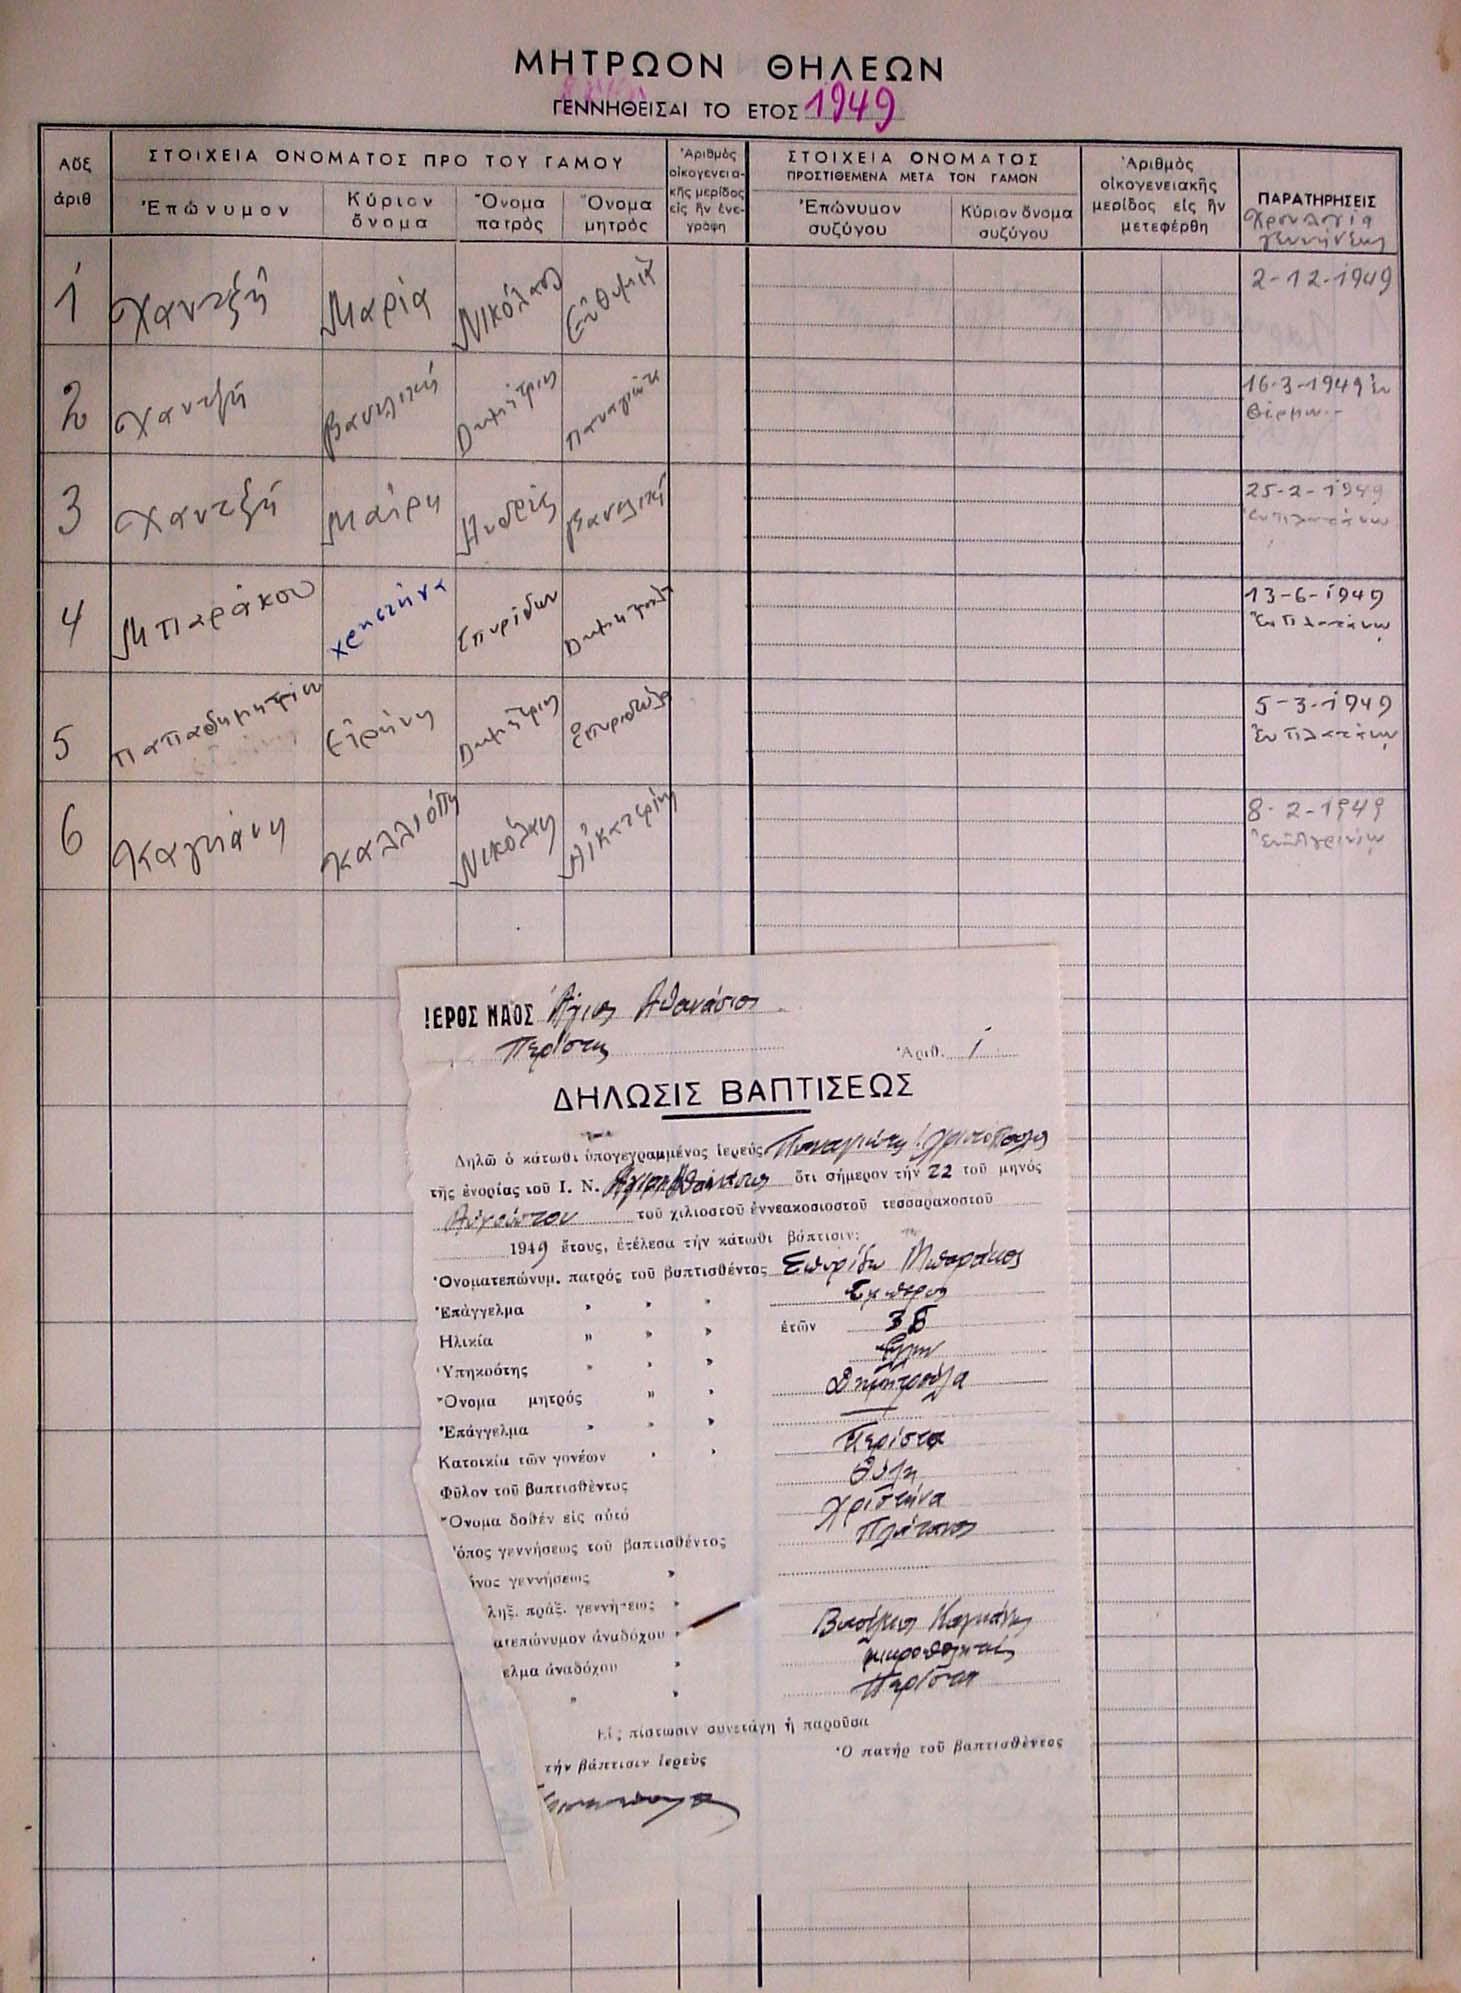 ΜΗΤΡΩΟΝ ΘΗΛΕΩΝ
ΓΕΝΝΗΘΕΙΣΑΙ ΤΟ ΕΤΟΣ 1949
Αὔξ ἀριθ
ΣΤΟΙΧΕΙΑ ΟΝΟΜΑΤΟΣ ΠΡΟ ΤΟΥ ΓΑΜΟΥ
Ἐπώνυμον
Κύριον ὄνομα
Ὄνομα πατρὸς
Ὄνομα μητρὸς
Ἀριθμὸς οἰκογενειακῆς μερίδος εἰς ἣν ἐνεγράφη
ΣΤΟΙΧΕΙΑ ΟΝΟΜΑΤΟΣ
ΠΡΟΣΤΙΘΕΜΕΝΑ ΜΕΤΑ ΤΟΝ ΓΑΜΟΝ
Ἐπώνυμον συζύγου
Κύριον ὄνομα συζύγου
Ἀριθμὸς οἰκογενειακῆς μερίδος εἰς ἣν μετεφέρθη
ΠΑΡΑΤΗΡΗΣΕΙΣ
Χρονολογία γεννήσεως
1 Χαντζῆ Μαρία Νικόλαος Εὐθυμία 2-12-1949
2 Χαντζή Βασιλική Δημήτριος Παναγιώτα 16-3-1949 ἐν
Θέρμον
3 Χαντζή Μαίρη Ἀνδρέας Βασιλική 25-2-1949
Ἐν Πλατάνῳ
4 Μπαράκου Χρηστήνα Σπυρίδων Δημητρούλα 13-6-1949
Ἐν Πλατάνῳ
5 Παπαδημητρίου Εἰρήνη Δημήτριος Σπυριδούλα 5-3-1949
Ἐν Πλατάνῳ
6 Καγιάνη Καλλιόπη Νικόλαος Αἰκατερίνη 8-2-1949
Ἐν Ἀγρινίῳ
ΙΕΡΟΣ ΝΑΟΣ Ἅγιος Ἀθανάσιος
Περίστης Ἀριθ. 1
ΔΗΛΩΣΙΣ ΒΑΠΤΙΣΕΩΣ
Δηλῶ ὁ κάτωθι ὑπογεγραμμένος ἱερεὺς Παναγιώτης Χριστόπουλος
τῆς ἐνορίας τοῦ Ι. Ν. Ἁγίου Ἀθανασίου ὅτι σήμερον τὴν 22 τοῦ μηνός
Αὐγούστου τοῦ χιλιοστοῦ ἐννεακοσιοστοῦ τεσσαρακοστοῦ
1949 ἔτους, ἐτέλεσα τὴν κάτωθι βάπτισιν:
Ὀνοματεπώνυμ. πατρός τοῦ βαπτισθέντος Σπυρίδων Μπαράκος
Ἐπάγγελμα » » » Ἔμπορος
Ἡλικία » » » ἐτῶν 38
Ὑπηκοότης » » » Ἕλλην
Ὄνομα μητρός » » Δημητρούλα
Ἐπάγγελμα » » »
Κατοικία τῶν γονέων » » Περίστα
Φῦλον τοῦ βαπτισθέντος Θύλη
Ὄνομα δοθέν εἰς αὐτό Χριστήνα
όπος γεννήσεως τοῦ βαπτισθέντος Πλάτανος
όνος γεννήσεως »
ληξ. πράξ. γεννήσεως »
ατεπώνυμον ἀναδόχου » Βασίλειος Καγιάνης
ελμα ἀναδόχου » μικροπωλητής
» » Περίστα
Εἰς πίστωσιν συνετάγη ἡ παροῦσα
τὴν βάπτισιν ἱερεὺς Ὁ πατὴρ τοῦ βαπτισθέντος